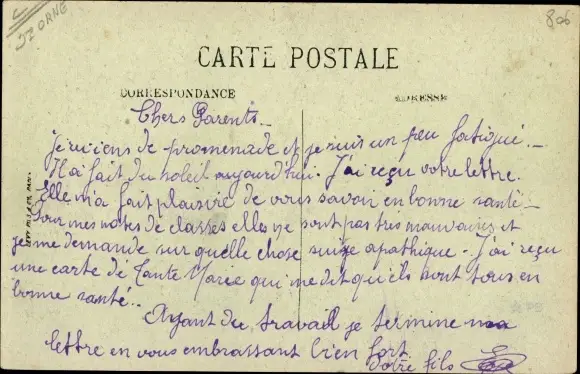 ORNE
806
CARTE POSTALE
CORRESPONDANCE
ADRESSE
Chers Parents._
Je viens de promenade et je suis un peu fatigué._
Il a fait du soleil aujourd'hui. J'ai reçu votre lettre.
Elle m'a fait plaisir de vous savoir en bonne santé_
Pour mes notes de classes elles ne sont pas très mauvaises et
je me demande sur quelle chose suis apathique. J'ai reçu
une carte de Tante Marie qui me dit qu'ils sont tous en
bonne santé._
Ayant du travail je termine ma
lettre en vous embrassant bien fort
votre fils